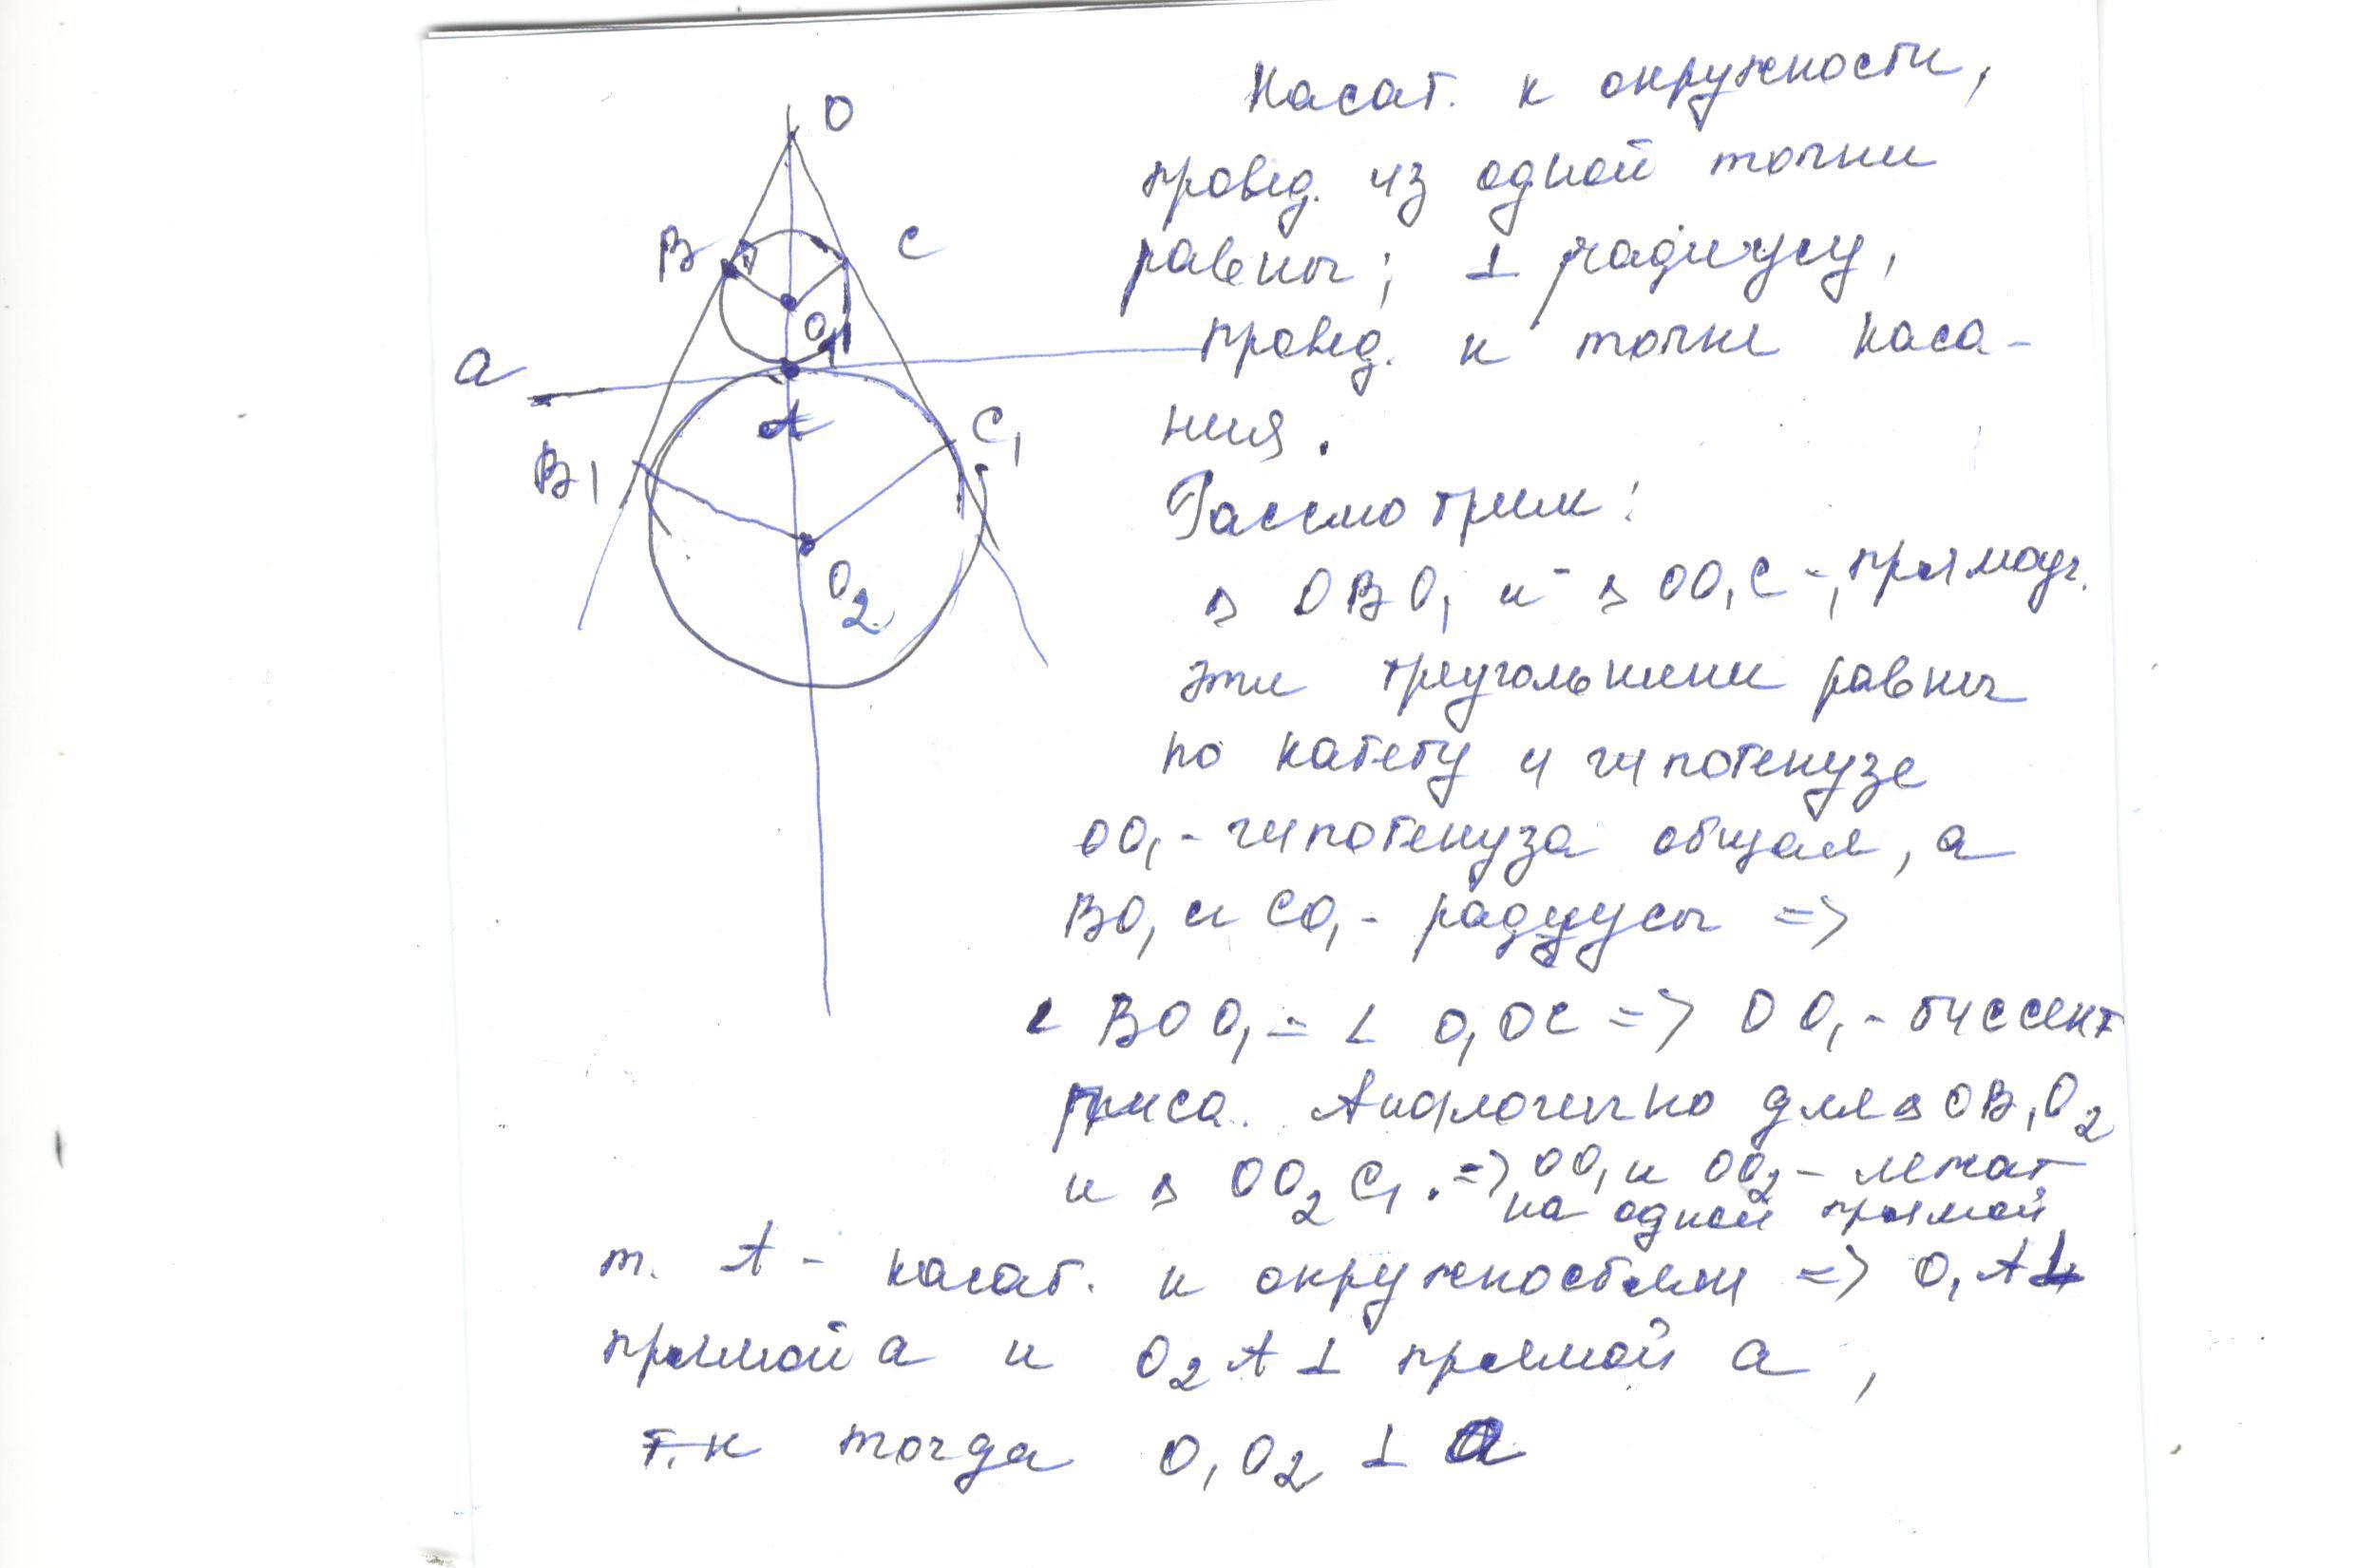 O
B
C
O1
a
A
B1
C1
O2
Касат. к окружности,
провед. из одной точки
равны; ⊥ радиусу,
провед. к точке каса-
ния.
Рассмотрим:
Δ OBO1 и Δ OO1C - прямоуг.
эти треугольники равны
по катету и гипотенузе
OO1 - гипотенуза общая, а
BO1 и CO1 - радиусы =>
∠ BOO1 = ∠ O1OC => OO1 - биссект
риса. Аналогично для Δ OB1O2
и Δ OO2C1. => OO1 и OO2 - лежат
на одной прямой
т. A - касат. к окружностям => O1A ⊥
прямой a и O2A ⊥ прямой a,
т.к тогда O1O2 ⊥ a